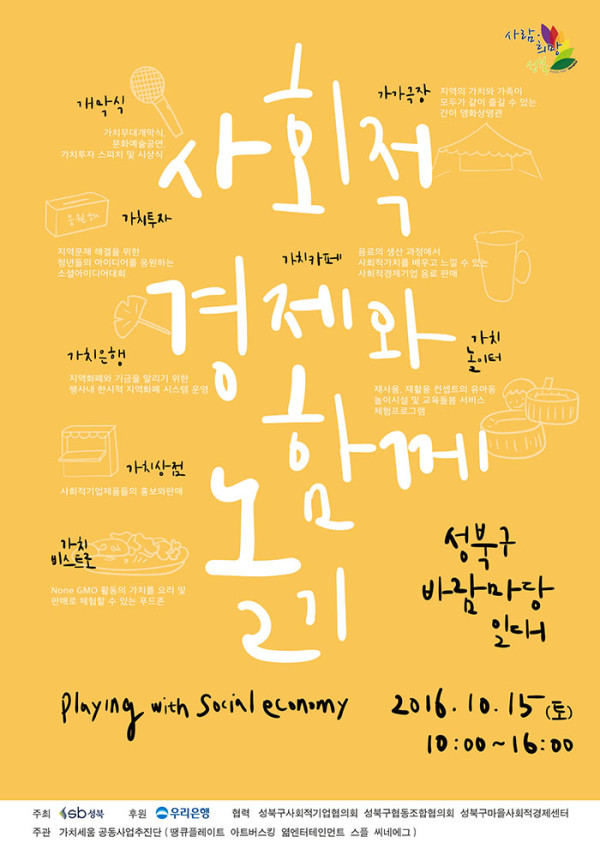 사람·희망
성북
개막식
가치무대개막식,
문화예술공연,
가치투자 스피치 및 시상식
가가극장
지역의 가치와 가족이
모두가 같이 즐길 수 있는
간이 영화상영관
사회적
응원해
가치투자
지역문제 해결을 위한
청년들의 아이디어를 응원하는
소셜아이디어대회
가치카페
음료의 생산 과정에서
사회적가치를 배우고 느낄 수 있는
사회적경제기업 음료 판매
경제와
가치은행
지역화폐와 기금을 알리기 위한
행사내 한시적 지역화폐 시스템 운영
가치
놀이터
재사용, 재활용 컨셉트의 유아동
놀이시설 및 교육돌봄 서비스
체험프로그램
함께
가치상점
사회적기업제품들의 홍보와판매
놀기
가치
비스트로
None GMO 활동의 가치를 요리 및
판매로 체험할 수 있는 푸드존
성북구
바람마당
일대
playing with social economy
2016.10.15(토)
10:00~16:00
주최 sb성북 후원 우리은행 협력 성북구사회적기업협의회 성북구협동조합협의회 성북구마을사회적경제센터
주관 가치세움 공동사업추진단 ( 땡큐플레이트 아트버스킹 엶엔터테인먼트 스플 씨네에그 )